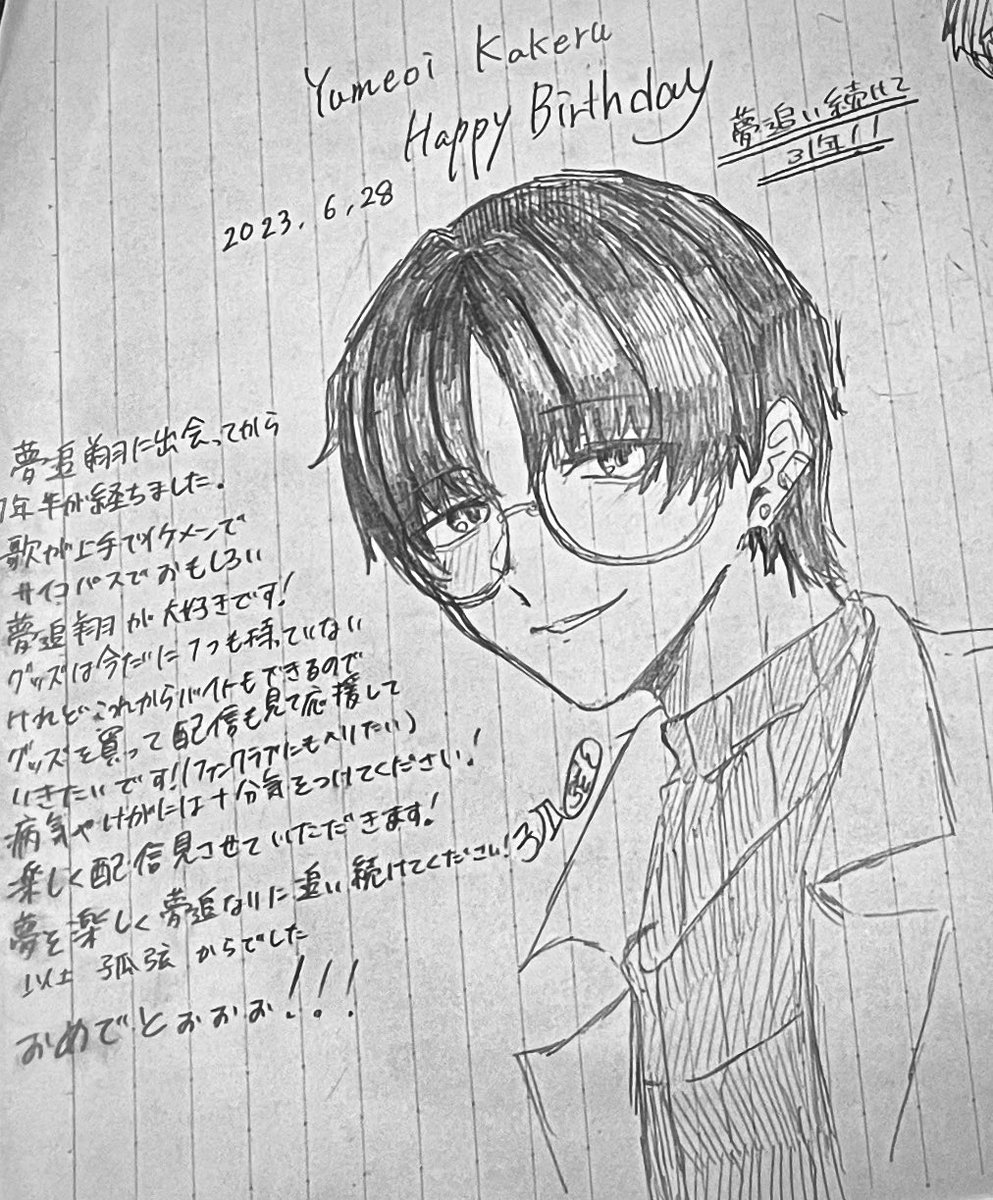 Yumeoi Kakeru
Happy Birthday
夢追い続けて
31年!!
2023.6.28
夢追翔に出会ってから
1年半が経ちました.
歌が上手でイケメンで
サイコパスでおもしろい
夢追翔が大好きです!
グッズは今だに1つも持っていない
けれどこれからバイトもできるので
グッズを買って配信も見て応援して
いきたいです!(ファンクラブにも入りたい)
病気やけがには十分気をつけてください!
楽しく配信見させていただきます!
夢を楽しく夢追なりに追い続けてください!
以上 孤弦 からでした
おめでとぉぉぉ!!!